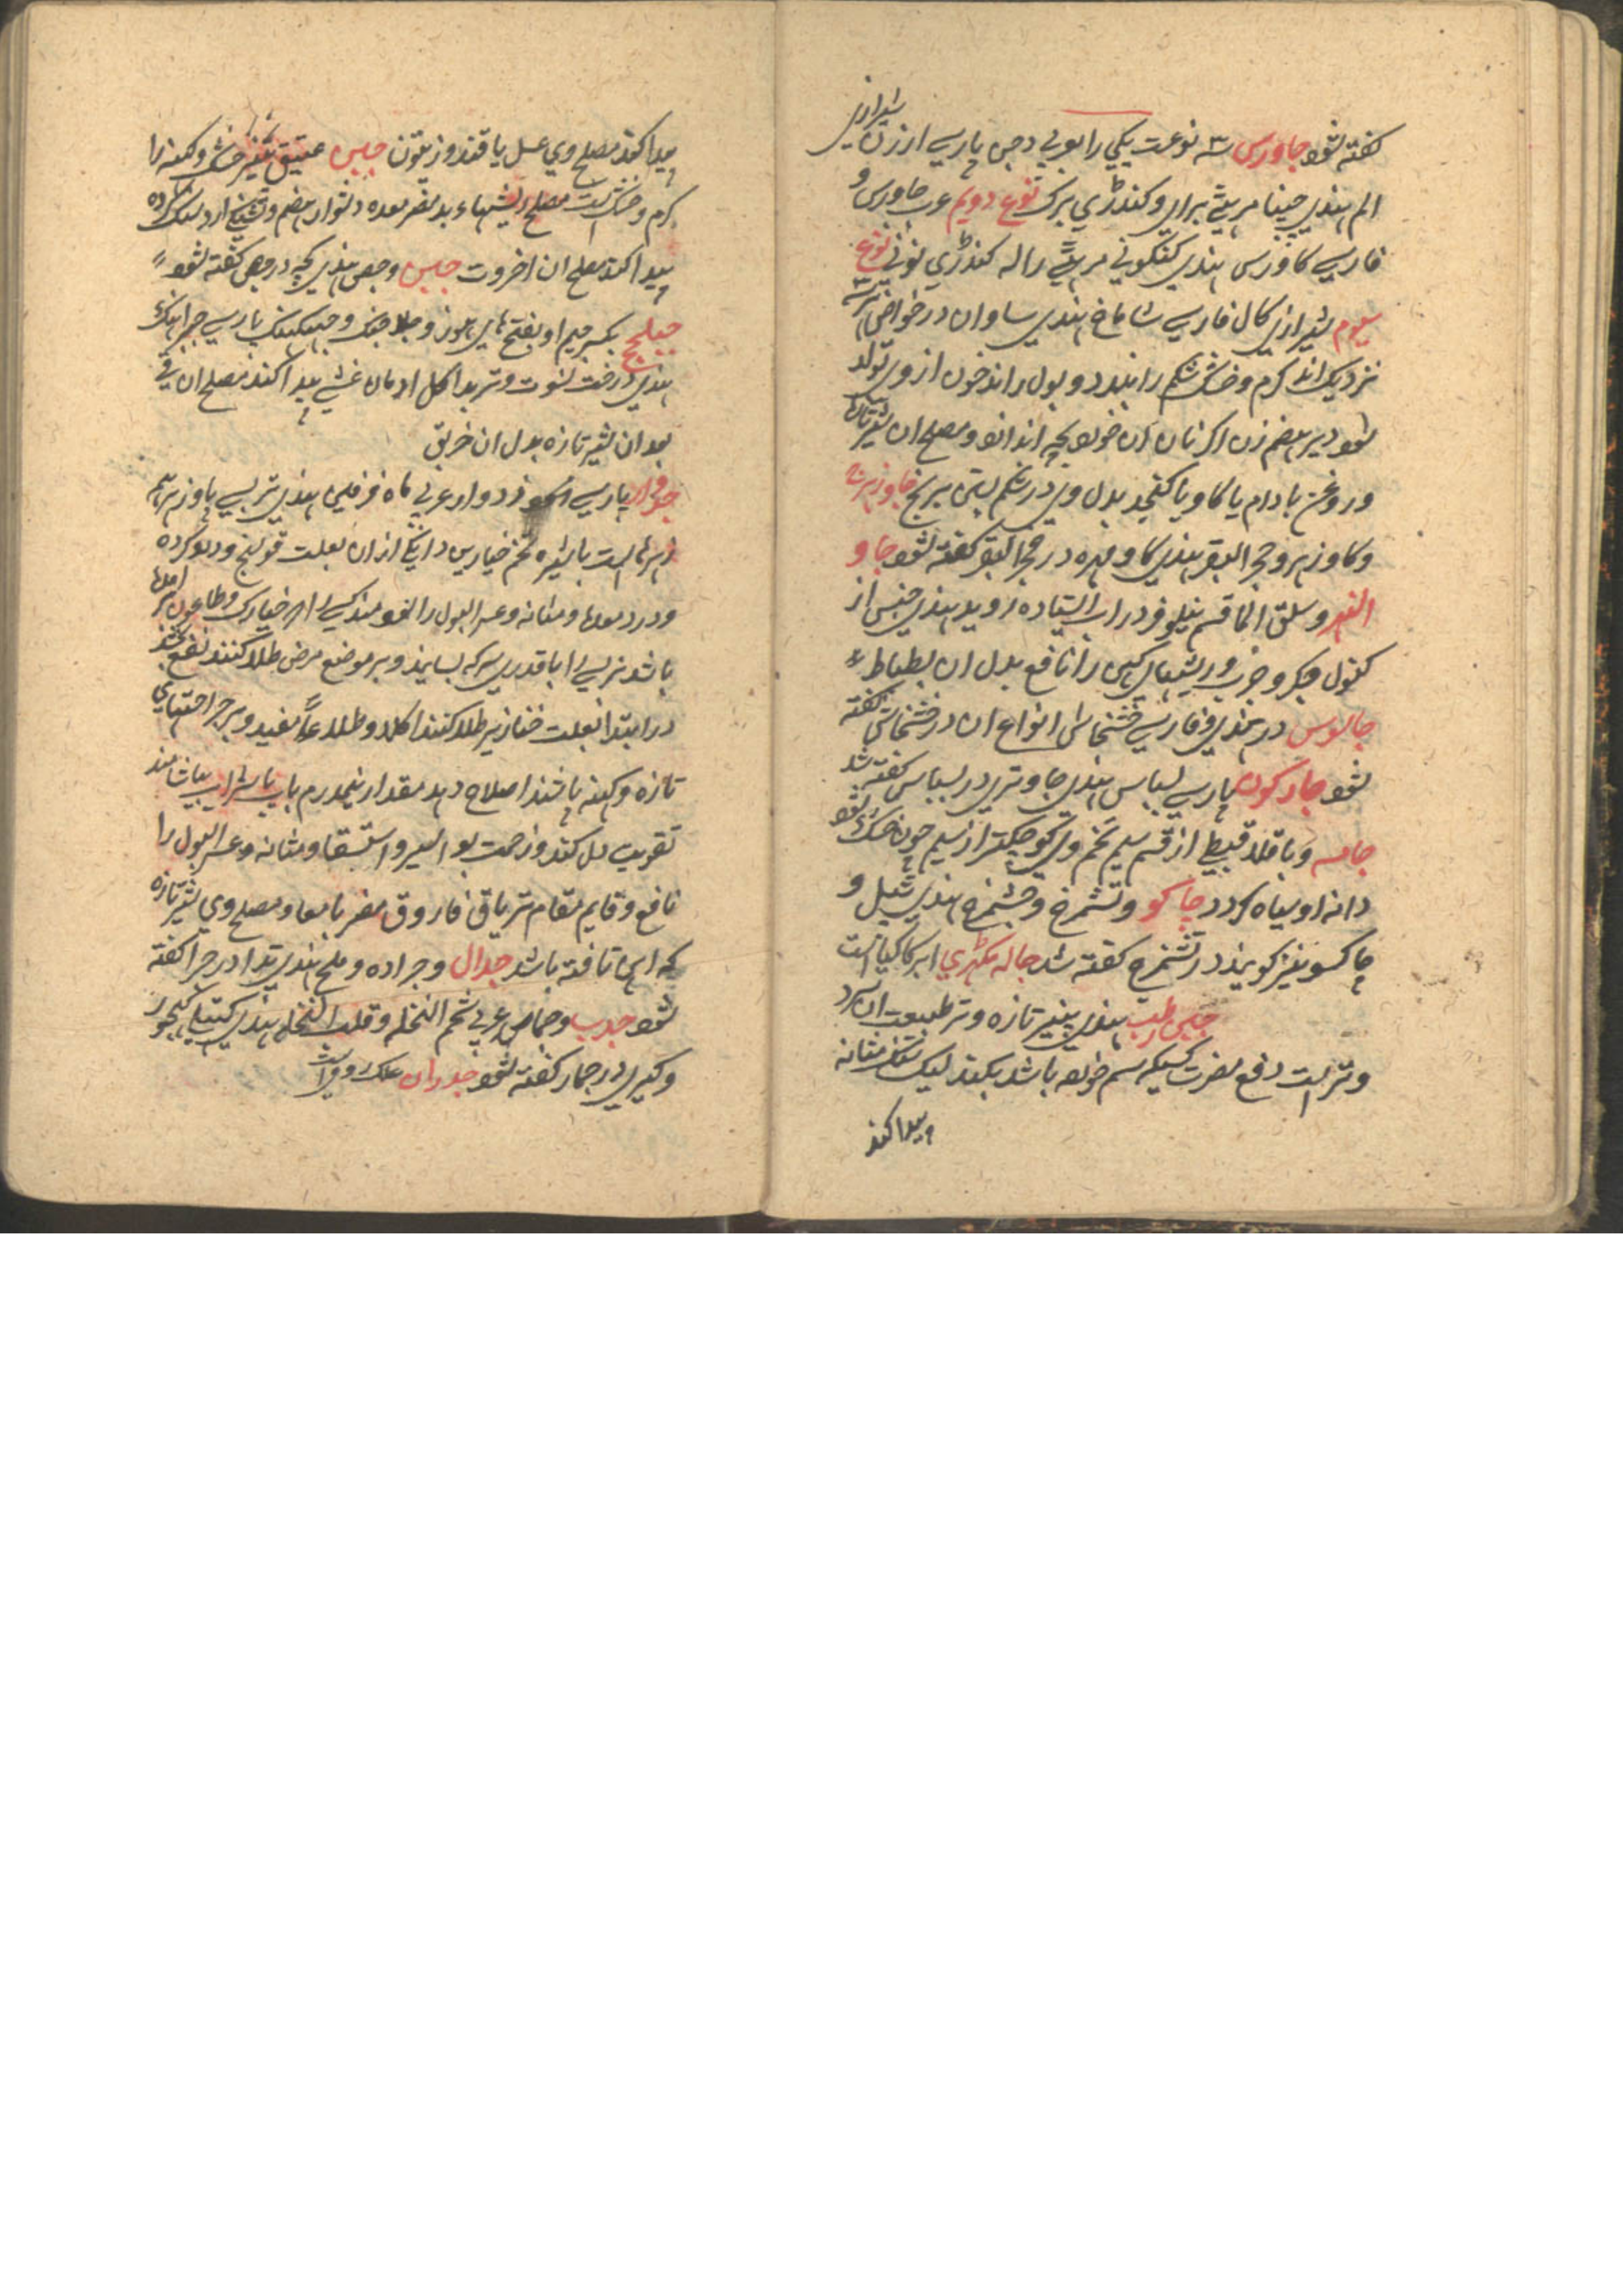 کفته شود جاورس سه نوعت یکی را بعربی دخن پارسی ارزن شیرازی
الم هندی چینا مرهتی برای وکندڑی برک نوع دویم عرب جاورس و
فارسی کاورس هندی کنکونی مرهتی راله کندڑی نونی نوع
سیوم شیرازی کال فارسی شاماخ هندی ساوان در خواص
نزدیک اند کرم وخشک شکم را ببندد و بول راند خون از وی تولد
شود دیر هضم زن اکر نان آن خورد بچه اندازد ومصلح ان شیر تازه
وروغن بادام یا کاو یا کنجد بدل وی در شکم بستن برنج جاوزهرج
وکاوزهر وحجر البقر هندی کاو مهره در حجر البقر کفته شود جاو
النهر وسلق الما قسم نیلوفر در اب ایستاده روید هندی جنس از
کنول جکر وجرب وریشهای کهن را نافع بدل ان بطباط
جالوس در هندی وفارسی خشخاش انواع ان در خشخاش کفته
شود جارکون پارسی بسباس هندی جاوتری در بسباس کفته شد
جامسه وباقلا قبطی از قسم سیم تخم وی کوچکتر از سیم چون خشک شود
دانه او سیاه کردد چاکو وتشمزج وچشمزج هندی و
چاکسو نیز کویند در تشمزج کفته شد جاله مکهڑی ابر کاکیا است
جبن رطب هندی پنیر تازه وتر طبیعت ان سرد
وتر است دفع مضرت کسیکه سم خورده باشد بکند لیک سنک مثانه
پیدا کند
پیدا کند مصلح وی عسل یا قند وزیتون جبن عتیق پنیر خشک وکهنه را
کرم وخشک است مصلح ریشهاء بد مضر معده دشوار هضم وتشنج ارد سنک کرده
پیدا کند مصلح ان اخروت جبن وجص هندی کچ در جص کفته شود
جبلهج بکسر جیم او بفتح های هوز و پارسی
هندی درخت نسوت وتربد اکل ادمان غشی پیدا کند مصلح ان قی
بعد ان شیر تازه بدل ان خربق
جدوار پارسی زدوار عربی ماه فرفین هندی نربسی پاوزهر همه
زهرها است با شیره تخم خیارین دانکی ازان بعلت قولنج ودرد کرده
ودرد معدها ومثانه وعسر البول را نفع مند کسی را که خیارک وطاعون
باشد نربسی را با قدری سرکه بسایند وبر موضع مرض طلا کنند نفع بخشد
در ابتدا بعلت خنازیر طلا کنند اکلا وطلاءً مفید وبر جراحتهای
تازه وکهنه باشند اصلاح دهد مقدار نیمدرم باب یا شراب بیاشامند
تقویت دل کند وزحمت بواسیر واستسقا ومثانه وعسر البول را
نافع وقایم مقام تریاق فاروق مضر بامعا ومصلح وی شیر تازه
که اهن تافته باشد جدال وجراده وملخ هندی تدا در جراد کفته
شود جدب وجماص عربی شحم النخله وقلب النخله هندی کهجور
وکیری در جمار کفته شود جدران علک رومی است